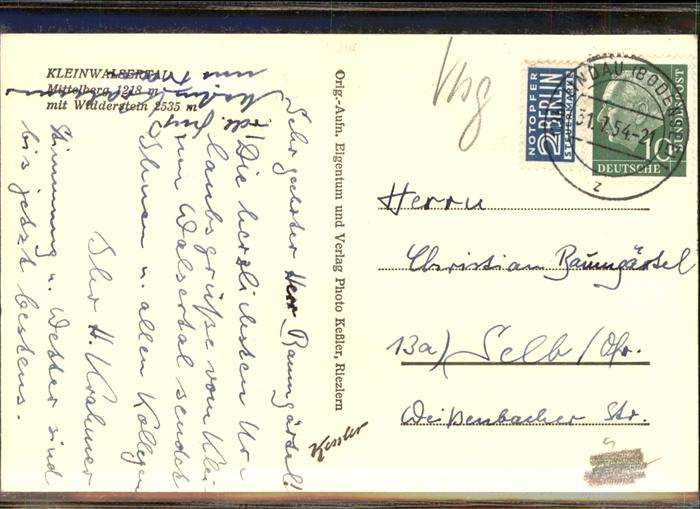 KLEINWALSERTAL
Mittelberg 1218 m
mit Widderstein 2535 m
Sehr geehrter Herr Baumgärtel!
Die herzlichsten Ur-
laubsgrüße vom Klei-
nen Walsertal sendet
Ihnen u. allen Kollegen
Ihr H. Krahmer
Stimmung u. Wetter sind
bis jetzt bestens.
Orig.-Aufn. Eigentum und Verlag Photo Keßler, Riezlern
Kessler
Vbg
NOTOPFER
2 BERLIN
STEUERMARKE
LINDAU (BODENSEE)
31.7.54-21
z
10
DEUTSCHE BUNDESPOST
Herrn
Christian Baumgärtel
13a) Selb/Ofr.
Weißenbacher Str.